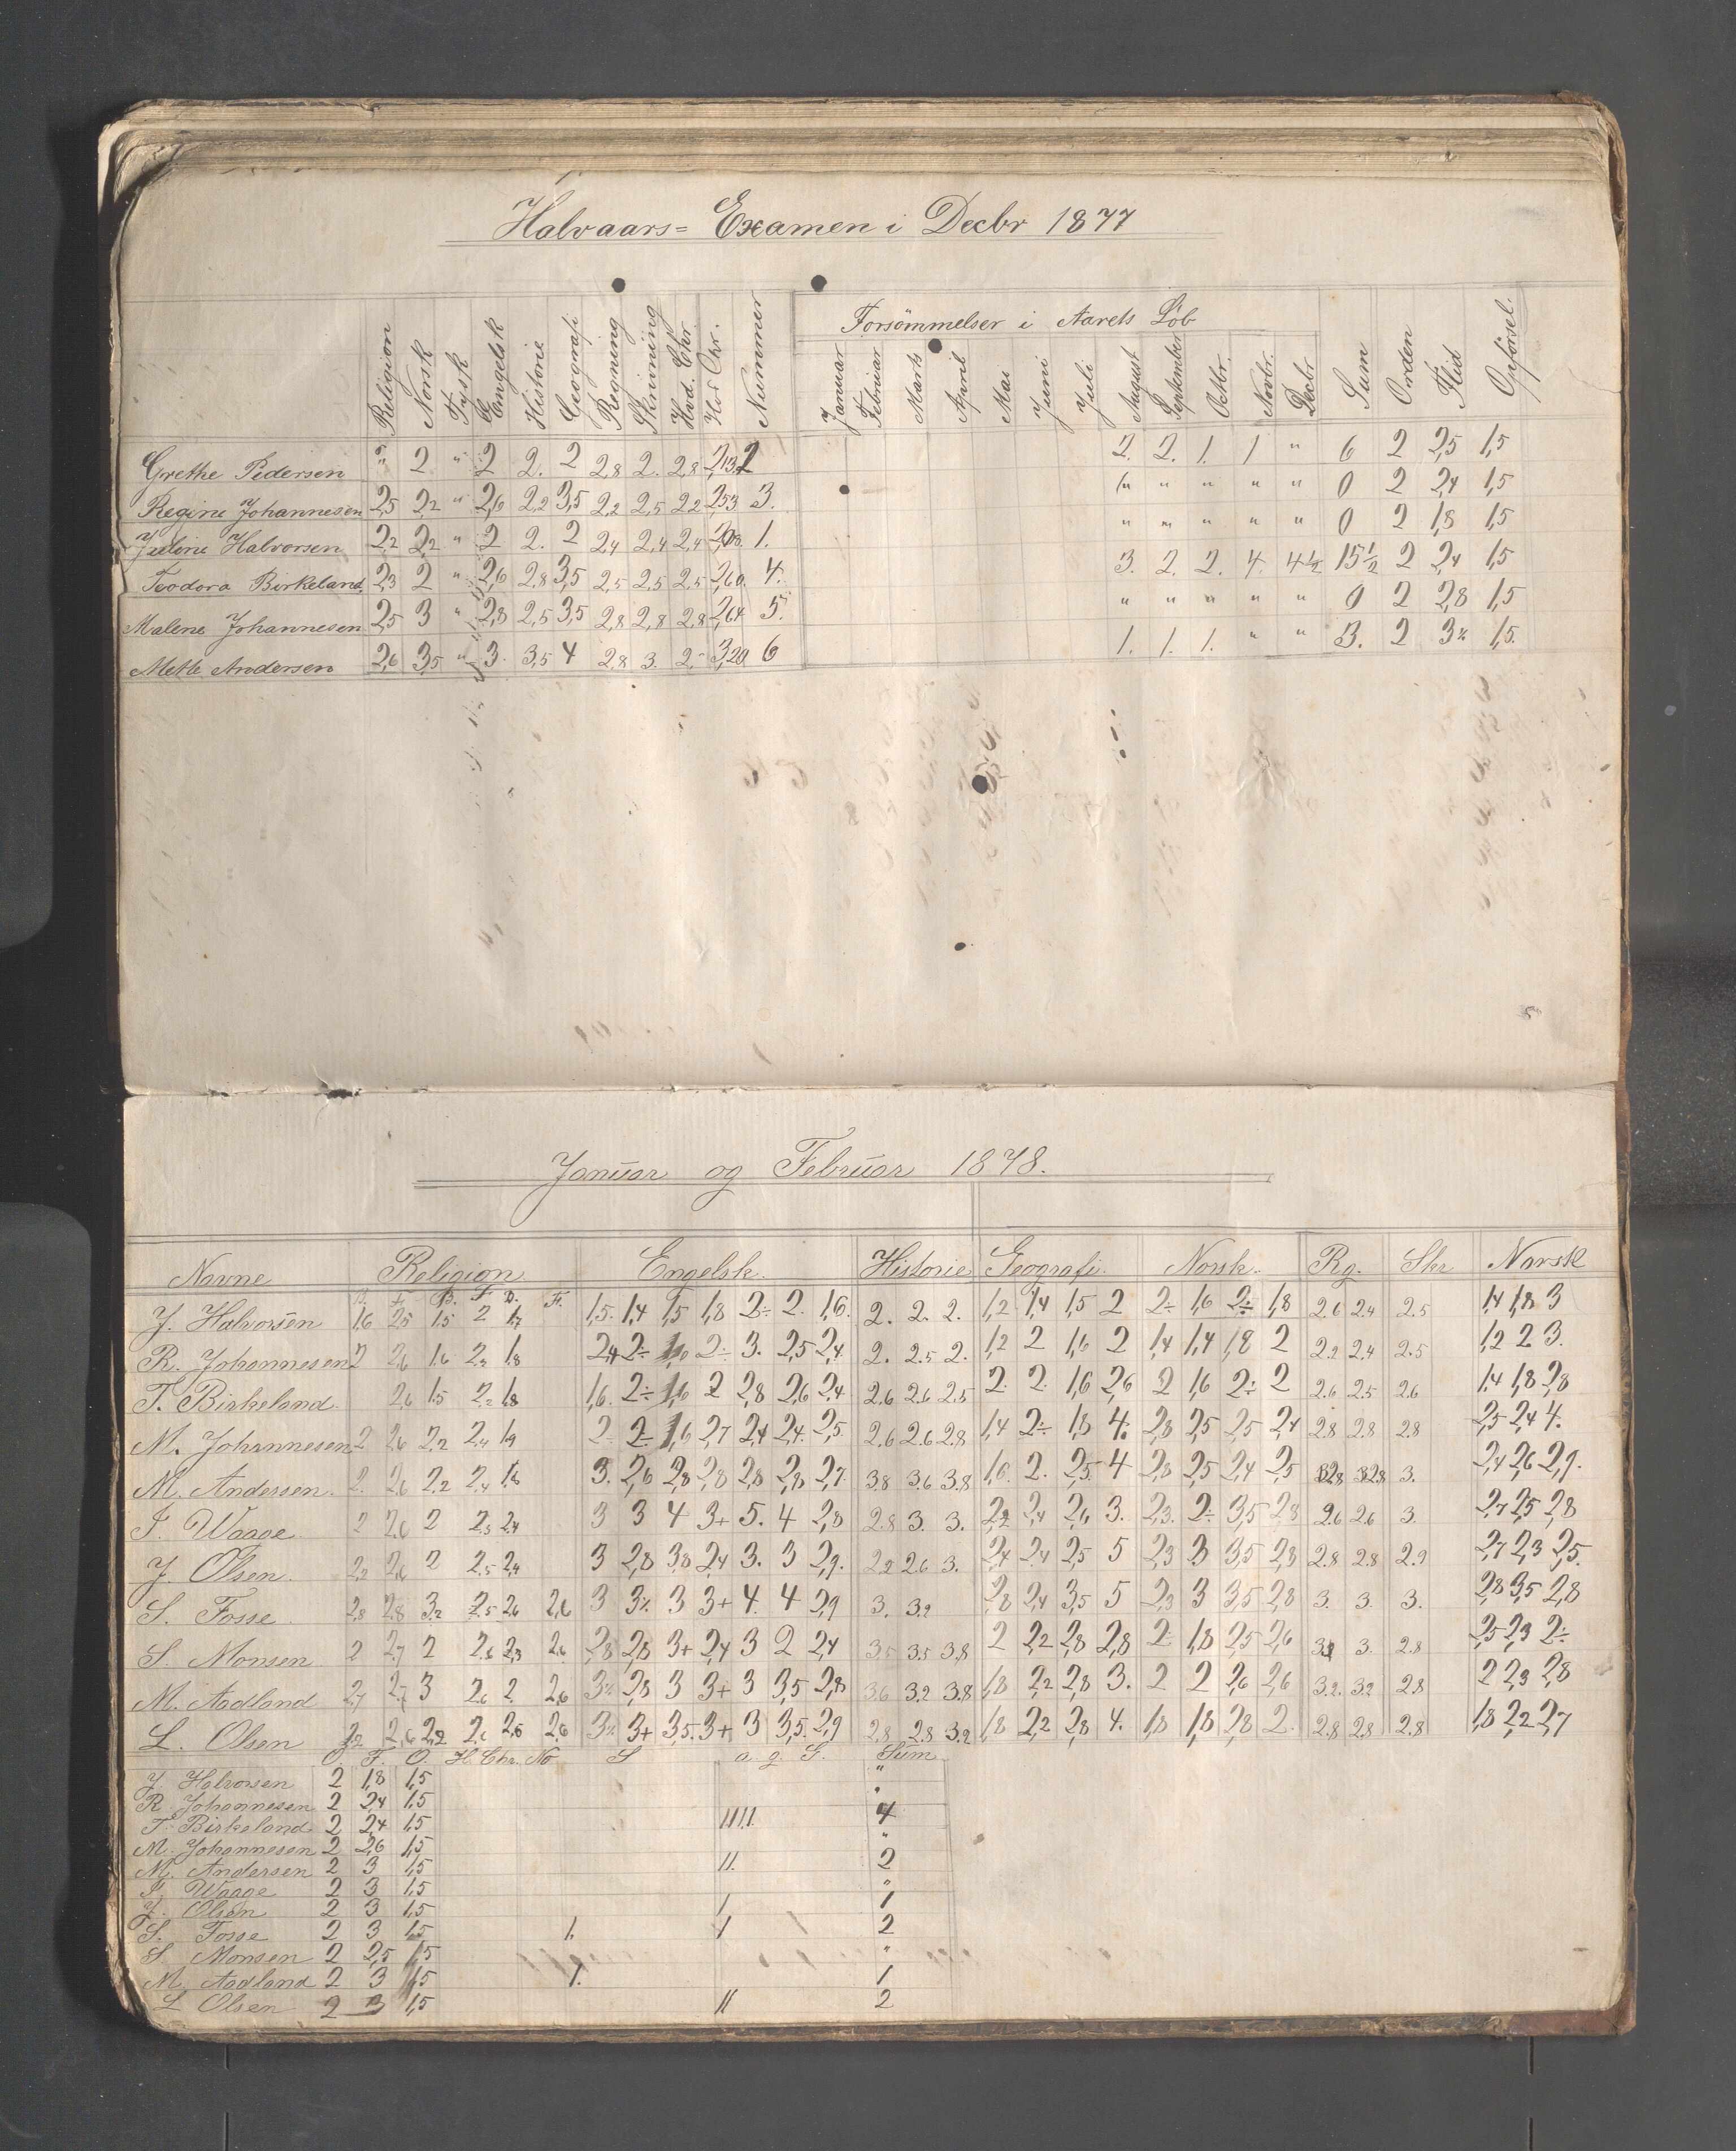 Halvaars= Examen i Decbr 1877
Religion Norsk Tysk Engelsk Historie Geografi Regning Skrivning Hvd. Chr. Hov Chr. Nummer Forsömmelser i Aarets Löb
Januar Februar Marts April Mai Juni Juli August September Octbr. Novbr. Decbr Sum Orden Flid Opförsel
Grethe Pedersen " 2 " 2 2. 2 2,8 2. 2,8 2,13 2 2. 2. 1. 1 " 6 2 2,5 1,5
Regine Johannesen 2,5 2,2 " 2,6 2,2 3,5 2,2 2,5 2,2 2,53 3. " " " " " 0 2 2,4 1,5
Juline Halvorsen 2,2 2,2 " 2 2. 2 2,4 2,4 2,4 1. " " " " " 0 2 1,8 1,5
Teodora Birkeland 2,3 2 " 2,6 2,8 3,5 2,5 2,5 2,5 2,60. 4. 3. 2. 2. 4. 4½ 15½ 2 2,4 1,5
Malene Johannesen 2,5 3 " 2,8 2,5 3,5 2,8 2,8 2,8 2,64 5. " " " " " 0 2 2,8 1,5
Mette Andersen 2,6 3,5 " 3. 3,5 4 2,8 3. 2 3,20 6 1. 1. 1. " " 3. 2 3 1,5.
Januar og Februar 1878.
Navne Religion Engelsk. Historie Geografi. Norsk. Rg. Skr Norsk
B. F. B. F. B. F.
J. Halvorsen 1,6 2,5 1,5 2 1,7 1,5. 1,4 1,5 1,8 2÷ 2. 1,6. 2. 2. 2. 1,2 1,4 1,5 2 2÷ 1,6 2÷ 1,8 2.6 2.4 2.5 1,4 1,8 3
R. Johannesen 2 2,6 1.6 2,2 1,8 2,4 2÷ 1,6 2÷ 3. 2,5 2,4. 2. 2.5 2. 1,2 2 1,6 2 1,4 1,4 1,8 2 2.2 2.4 2.5 1,2 2 3.
T. Birkeland. 2,6 1.5 2,2 1,8 1,6. 2÷ 1,6 2 2,8 2,6 2,4 2.6 2.6 2.5 2. 2. 1,6 2,6 2 1,6 2÷ 2 2.6 2.5 2.6 1,4 1,8 2,8
M. Johannesen 2 2,6 2,2 2,4 1,9 2÷ 2÷ 1,6 2,7 2,4 2,4. 2,5. 2.6 2.6 2.8 1,4 2÷ 1,8 4. 2,8 2,5 2,5 2,4 2.8 2.8 2.8 2,5 2,4 4.
M. Andersen. 2. 2,6 2,2 2,4 1,8 3. 2,6 2,8 2,8 2,8 2,8 2,7. 3.8 3.6 3.8 1,6. 2. 2,5. 4 2,8 2,5 2,4 2,5 2.8 2.8 3. 2,4 2,6 2,9.
J. Waage 2 2,6 2 2,5 2,4 3 3 4 3+ 5. 4 2,8 2.8 3. 3. 2,2 2,4 2,6 3. 2,3. 2÷ 3,5 2,8 2.6 2.6 3. 2,7 2,5 2,8
J. Olsen. 2,2 2,6 2 2,5 2,4 3 2,8 3,8 2,4 3. 3 2,9. 2.2 2.6 3. 2,4 2,4 2,5 5 2,3 3 3,5 2,8 2.8 2.8 2.9 2,7 2,3 2,5.
S. Fosse. 2,8 2,8 3,2 2,5 2,6 2,6 3 3 3 3+ 4. 4 2,9 3. 3.2 2,8 2,4 3,5 5 2,3 3 3,5 2,8 3. 3. 3. 2,8 3,5 2,8
S. Monsen. 2 2,7 2 2,6 2,3 2,6 2,8 2,8 3+ 2,4 3 2 2,4 3.5 3.5 3.8 2 2,2 2,8 2,8 2÷ 1,8 2,5 2,6 3. 2.8 2,5 2,3 2÷
M. Aadland 2,7 2,7 3 2,6 2 2,6 3 2,8 3 3+ 3 3,5 2,8 3.6 3.2 3.8 1,8 2,2 2,8 3. 2 2 2,6 2,6 3.2. 3.2 2.8 2 2,3 2,8
L. Olsen 2,6 2,2 2,6 2,6 2,6 3 3+ 3,5. 3+ 3 3,5. 2,9 2.8 2.8 3.2 1,8 2,2 2,8 4. 1,8 1,8 2,8 2. 2.8 2.8 2.8 1,8 2,2 2,7
O. F. O. H. Chr. No S a. g. S. Sum
J Halvorsen 2 1,8 1,5 "
R. Johannesen 2 2,4 1,5 "
T. Birkeland. 2 2,4 1,5 1111. 4
M. Johannesen 2 2,6 1,5 "
M. Andersen 2 3 1,5 11. 2
J. Waage 2 3 1,5 "
J. Olsen 2 3 1,5 1 1
S. Fosse 2 3 1,5 1. 1 2
S. Monsen 2 2,5 1,5 "
M. Aadland 2 3 1,5 1. 1
L Olsen 2 3 1,5 11 2